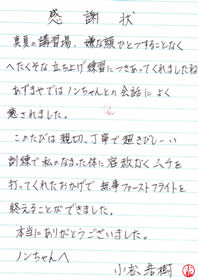 感謝状
真夏の講習場、嫌な顔ひとつすることなく
へたくそな立ち上げ練習につきあってくれましたね
あずまやではノンちゃんとの会話によく
癒されました。
このたびは親切、丁寧で超きびしーい
訓練で私のなまった体に容赦なくムチを
打ってくれたおかげで無事ファーストフライトを
終えることができました。
本当にありがとうございました。
ノンちゃんへ
小松